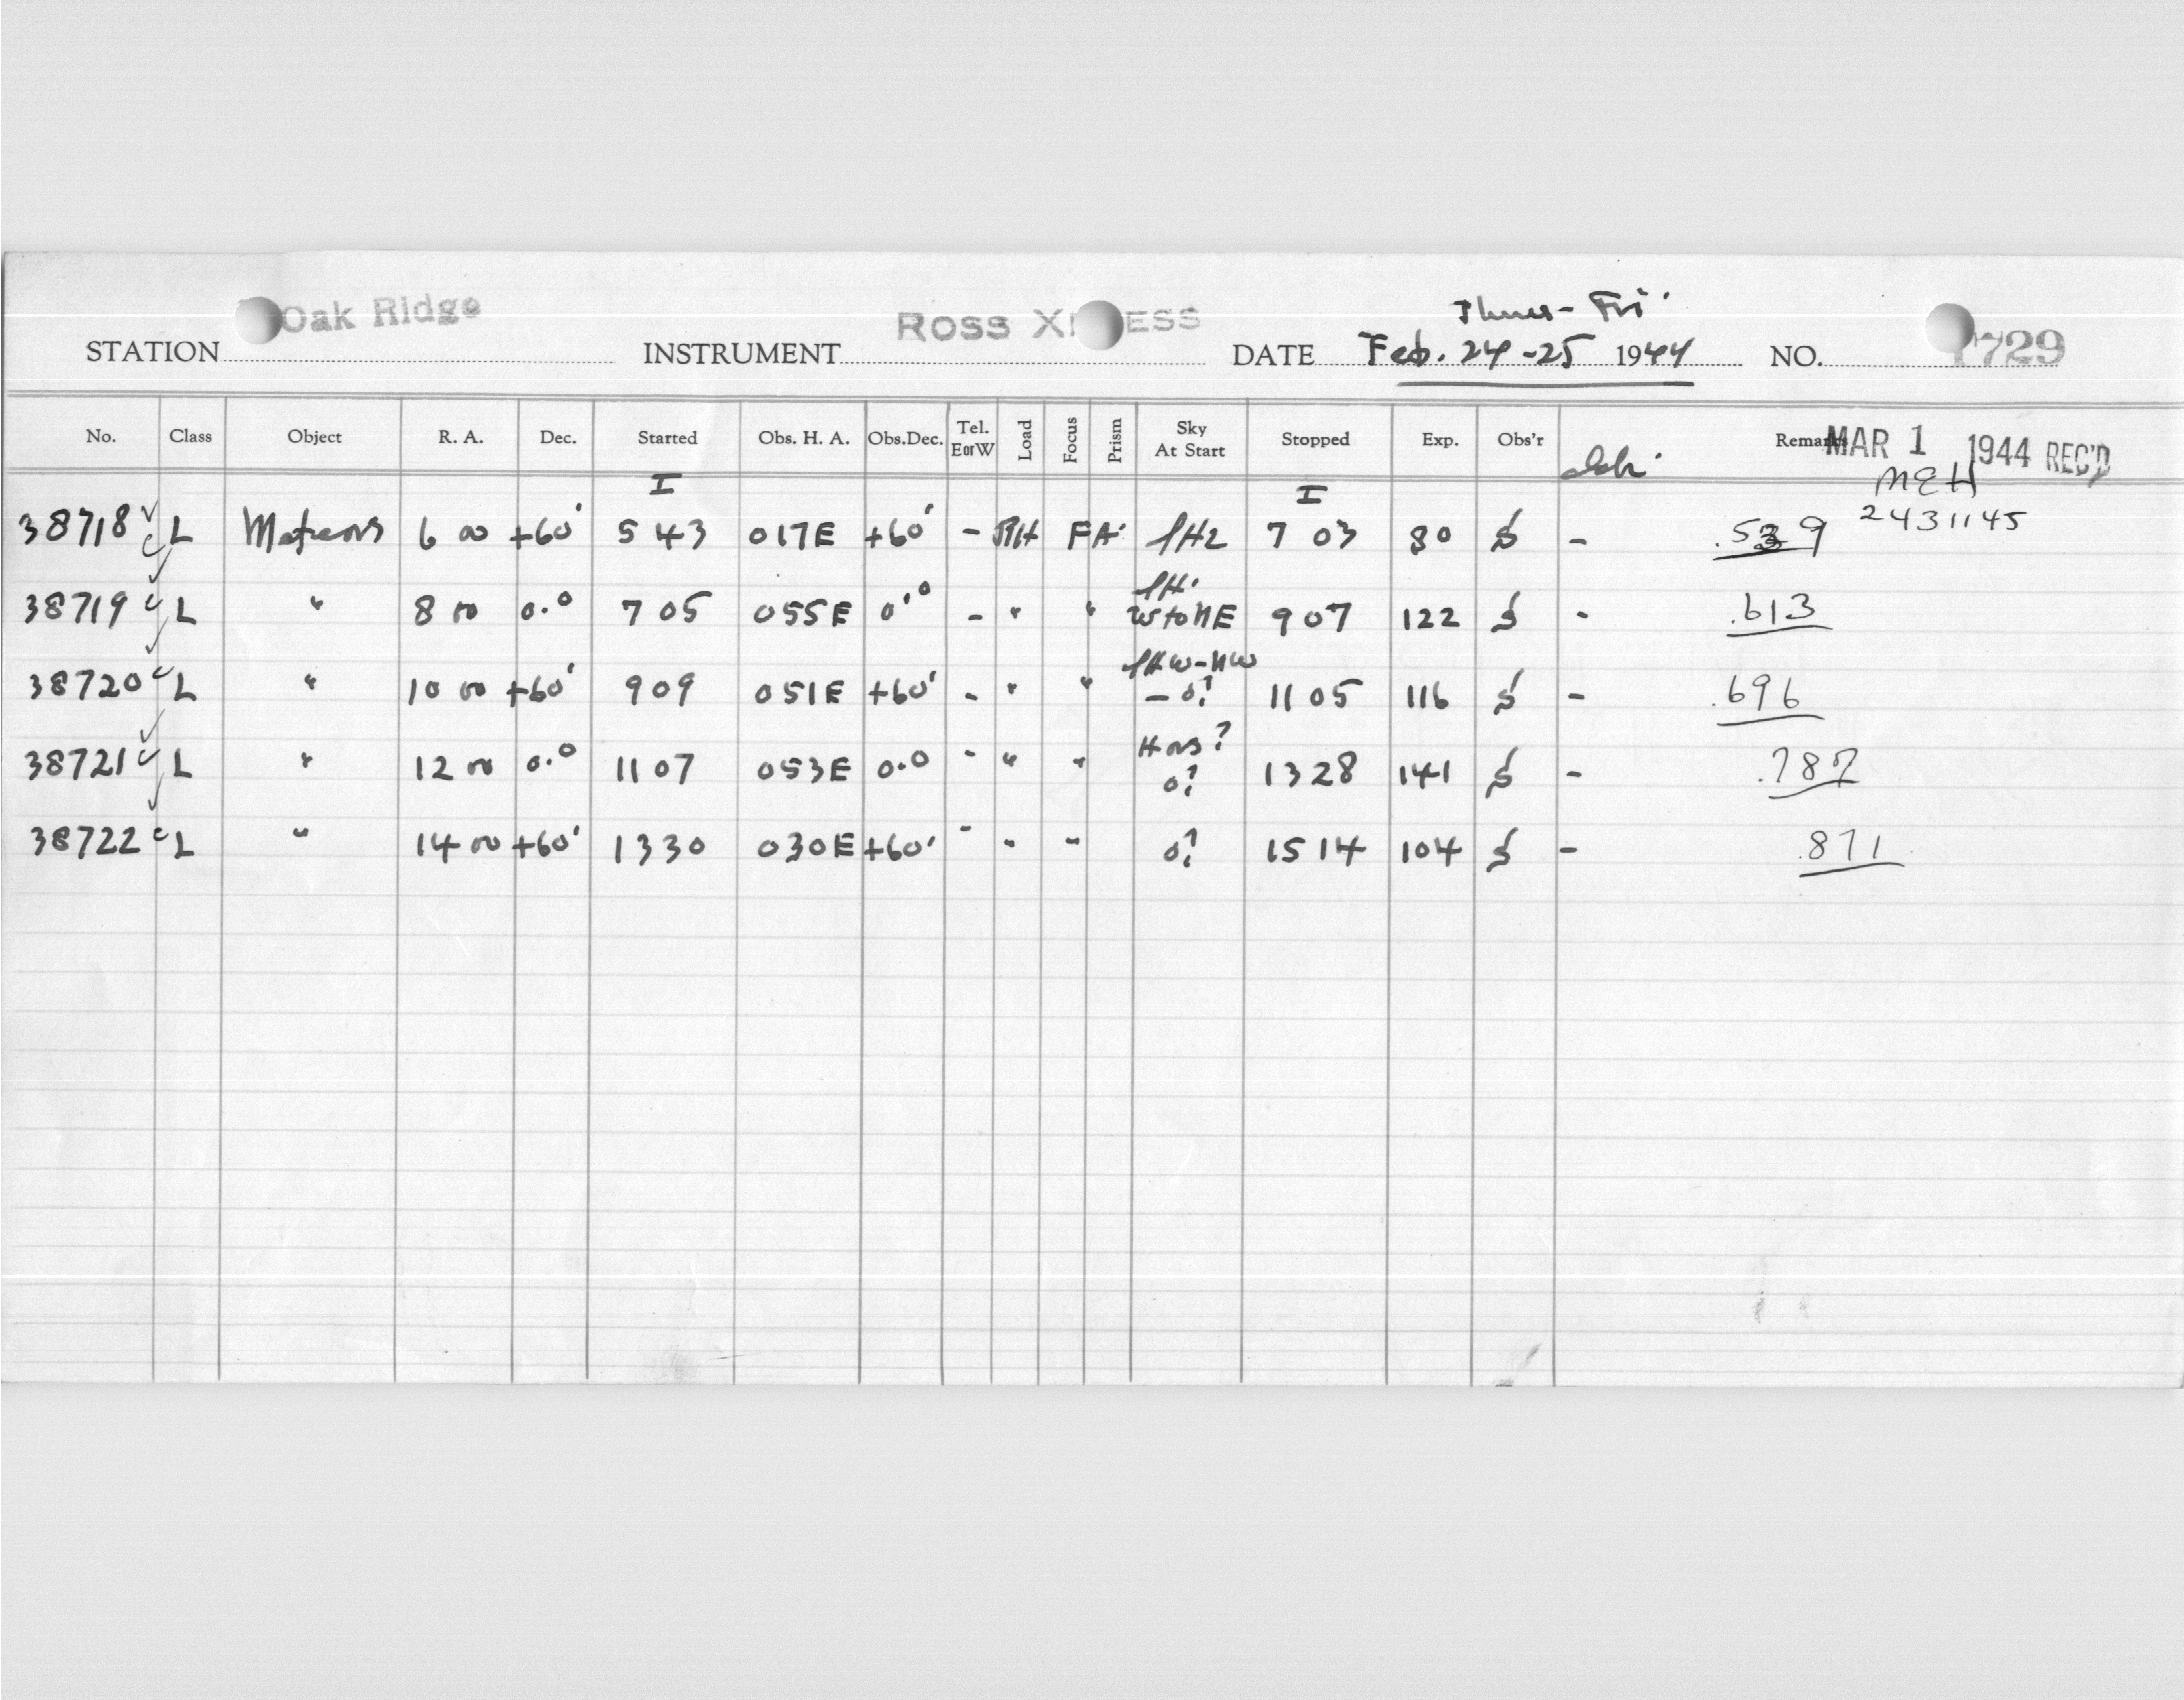 Oak Ridge
Thurs - Fri.
STATION INSTRUMENT Ross X ESS DATE Feb. 24-25 1944 NO. 1729
No. Class Object R. A. Dec. Started Obs. H. A. Obs.Dec. Tel. E or W Load Focus Prism Sky At Start Stopped Exp. Obs'r Remarks MAR 1 1944 REC'D
I I MEH
2431145
38718 L Meteors 6 00 +60 5 43 017E +60 - RH FA 7 03 80 S - .539
38719 L " 8 00 0.0 7 05 055E 0.0 - " " W to NE 9 07 122 S - .613
38720 L " 10 00 +60 9 09 051E +60 - " " W-NW - 0? 11 05 116 S - .696
38721 L " 12 00 0.0 11 07 053E 0.0 - " " 0? 13 28 141 S - .787
38722 L " 14 00 +60 13 30 030E +60 - " " 0? 15 14 104 S - .871